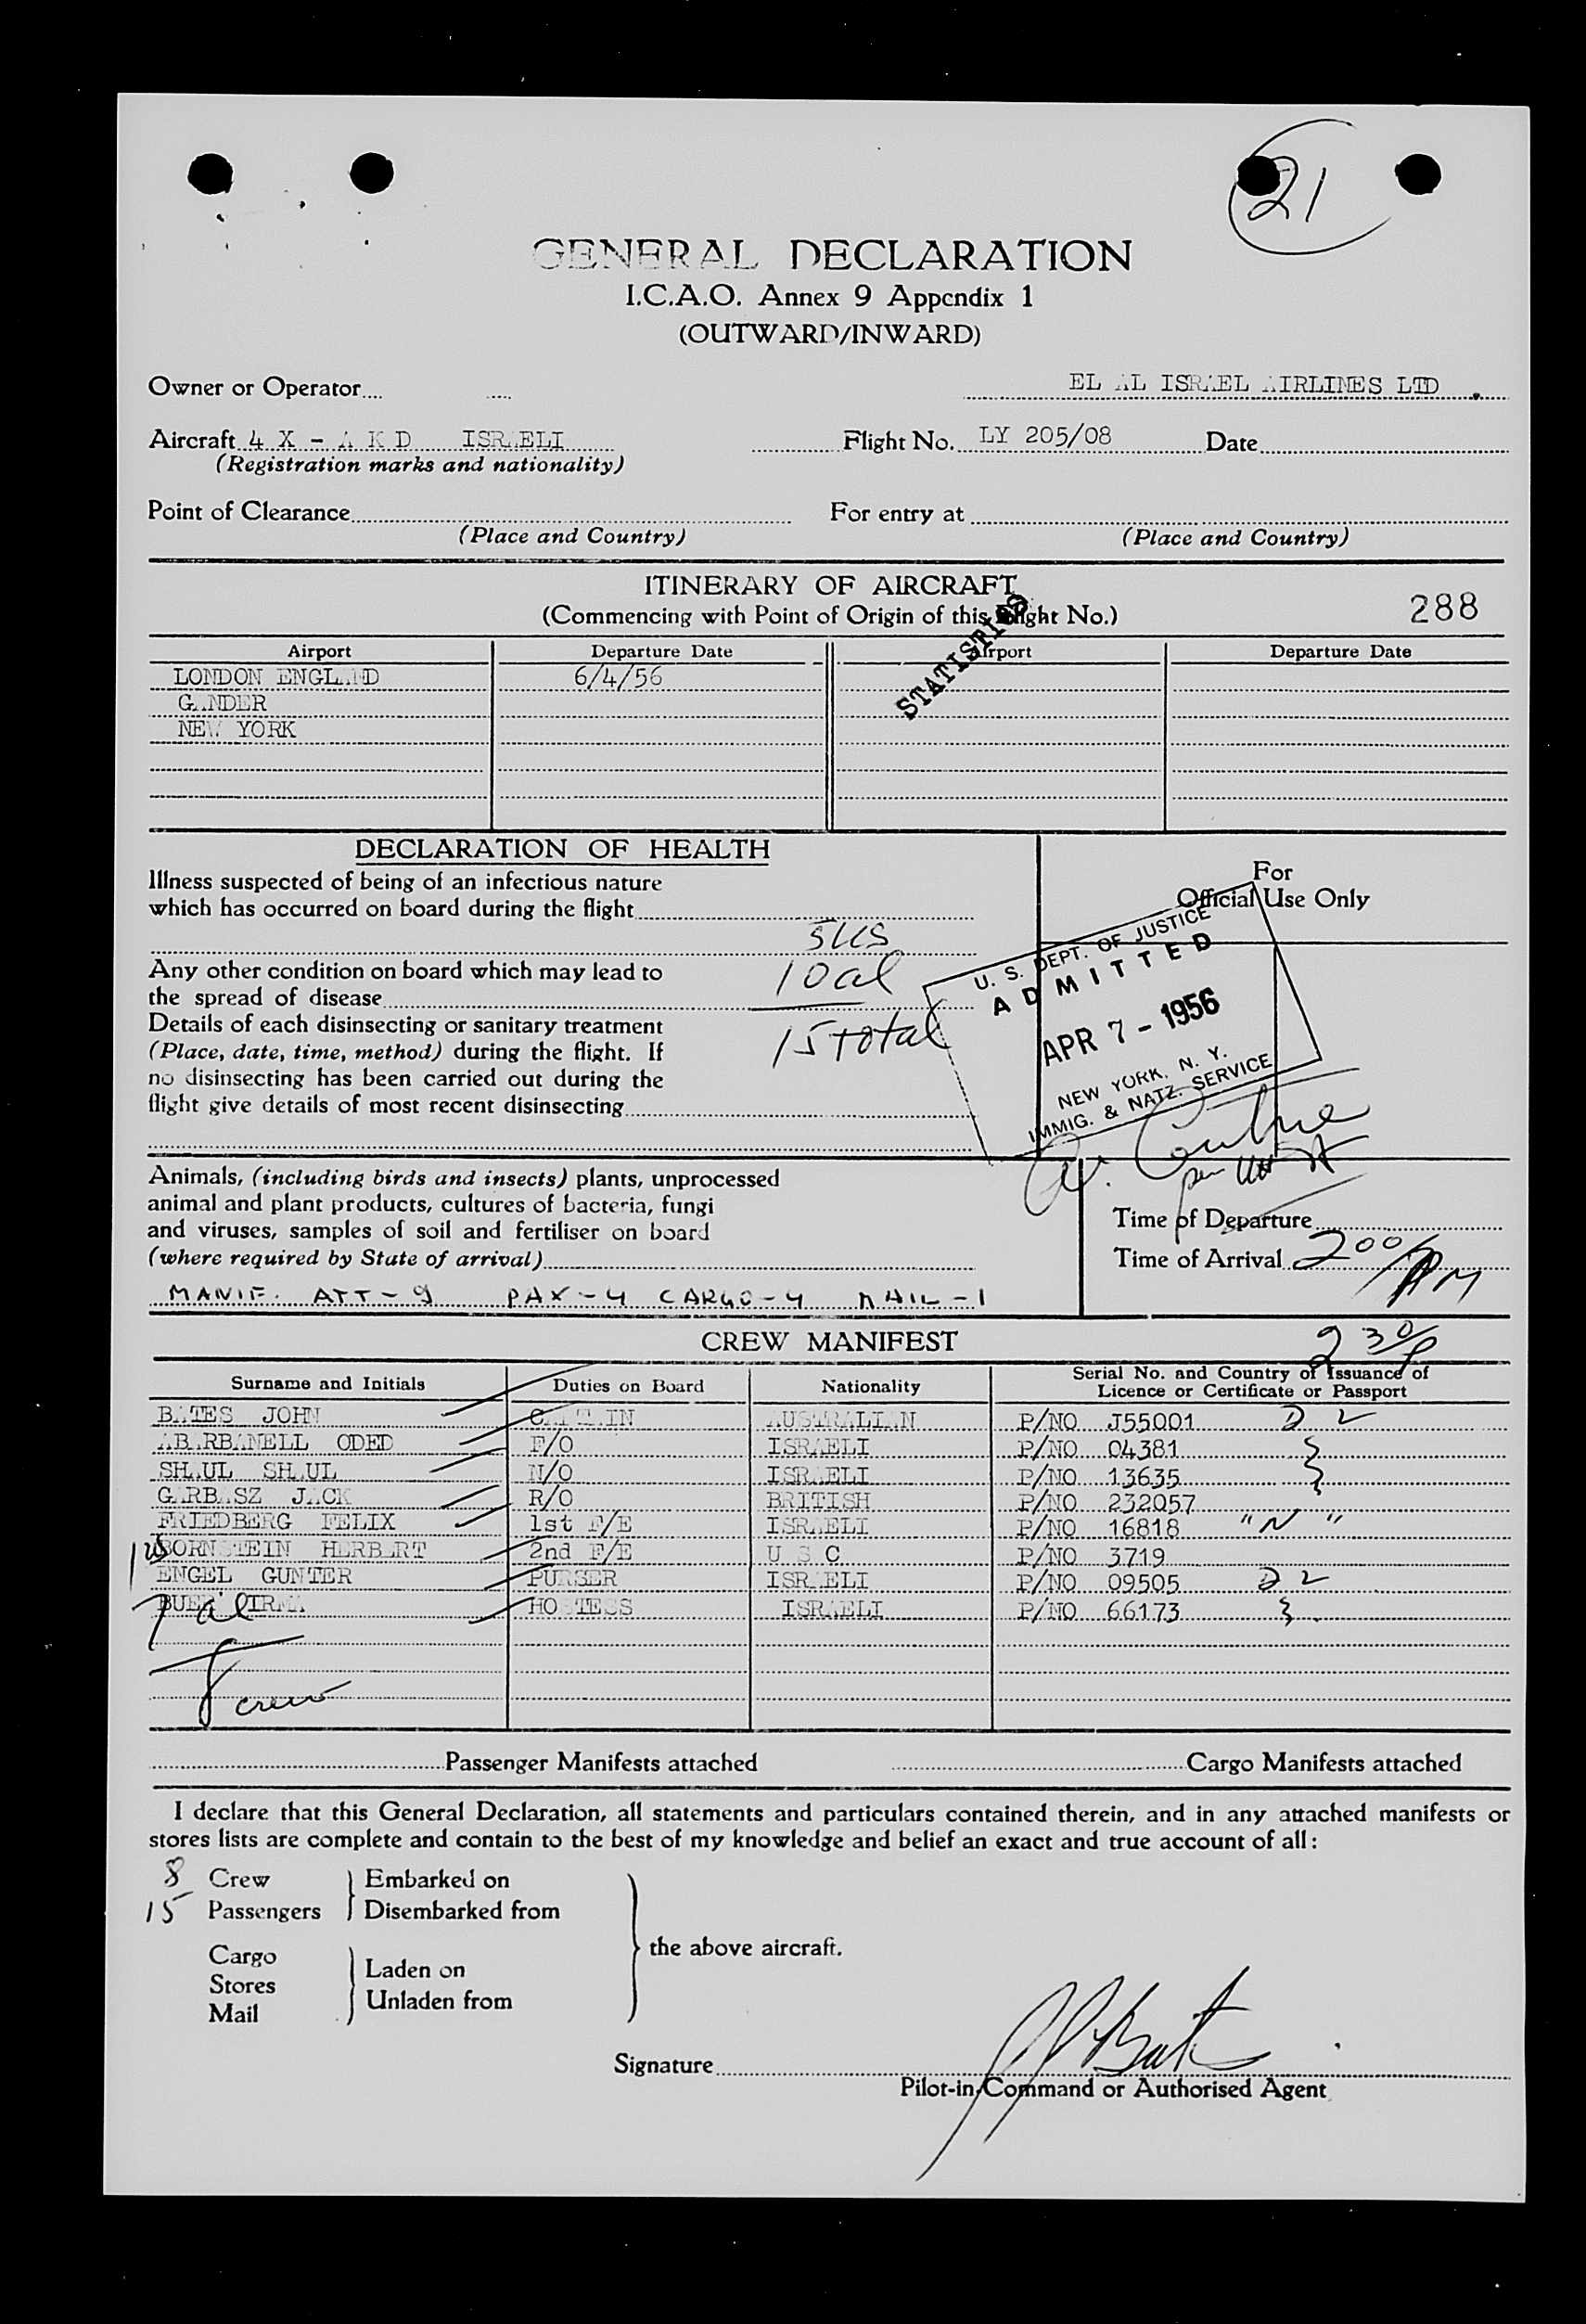 21
GENERAL DECLARATION
I.C.A.O. Annex 9 Appendix 1
(OUTWARD/INWARD)
Owner or Operator EL AL ISRAEL AIRLINES LTD
Aircraft 4 X - A K D ISRAELI Flight No. LY 205/08 Date
(Registration marks and nationality)
Point of Clearance For entry at
(Place and Country) (Place and Country)
ITINERARY OF AIRCRAFT
(Commencing with Point of Origin of this Flight No.) 288
STATISTICS
Airport Departure Date Airport Departure Date
LONDON ENGLAND 6/4/56
GANDER
NEW YORK
DECLARATION OF HEALTH
For
Official Use Only
Illness suspected of being of an infectious nature
which has occurred on board during the flight
5 US
Any other condition on board which may lead to
the spread of disease
10 al
Details of each disinsecting or sanitary treatment
15 total
(Place, date, time, method) during the flight. If
no disinsecting has been carried out during the
flight give details of most recent disinsecting
U. S. DEPT. OF JUSTICE
ADMITTED
APR 7 - 1956
NEW YORK, N. Y.
IMMIG. & NATZ. SERVICE
Animals, (including birds and insects) plants, unprocessed
animal and plant products, cultures of bacteria, fungi
and viruses, samples of soil and fertiliser on board
(where required by State of arrival)
Time of Departure
Time of Arrival 200 PM
MANIF. ATT - 9 PAX - 4 CARGO - 4 MAIL - 1
CREW MANIFEST
2 30 P
Surname and Initials Duties on Board Nationality Serial No. and Country of Issuance of
Licence or Certificate or Passport
BATES JOHN CAPTAIN AUSTRALIAN P/NO J55001 D 2
ABARBANELL ODED F/O ISRAELI P/NO 04381
SHAUL SHAUL N/O ISRAELI P/NO 13635
GARBASZ JACK R/O BRITISH P/NO 232057
FRIEDBERG FELIX 1st F/E ISRAELI P/NO 16818 "N"
BORNSTEIN HERBERT 2nd F/E U S C P/NO 3719
ENGEL GUNTER PURSER ISRAELI P/NO 09505 D 2
HOSTESS ISRAELI P/NO 66173
1 US
7 al
8 crew
Passenger Manifests attached Cargo Manifests attached
I declare that this General Declaration, all statements and particulars contained therein, and in any attached manifests or
stores lists are complete and contain to the best of my knowledge and belief an exact and true account of all:
8 Crew Embarked on
15 Passengers Disembarked from
the above aircraft.
Cargo
Stores
Mail
Laden on
Unladen from
Signature
Pilot-in-Command or Authorised Agent